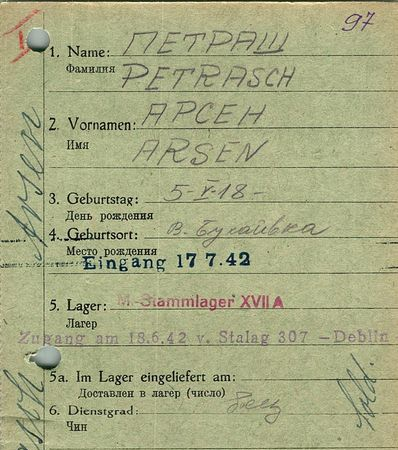 97
1. Name: ПЕТРАШ
Фамилия PETRASCH
2. Vornamen: АРСЕН
Имя ARSEN
3. Geburtstag: 5-V-18-
День рождения
4. Geburtsort: В. Булаивка
Место рождения
Eingang 17 7.42
5. Lager: M.-Stammlager XVII A
Лагер
Zugang am 18.6.42 v. Stalag 307 - Deblin -
5a. Im Lager eingeliefert am:
Доставлен в лагер (число)
6. Dienstgrad:
Чин
Sold.
Arsen